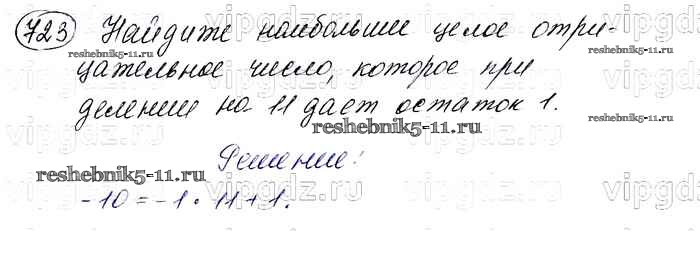 723 Найдите наибольшее целое отри-
reshebnik5-11.ru
reshebnik5-11.ru
цательное число, которое при
делении на 11 дает остаток 1.
reshebnik5-11.ru
reshebnik5-11.ru
Решение:
reshebnik5-11.ru
-10 = -1 · 11 + 1.
vipgdz.ru